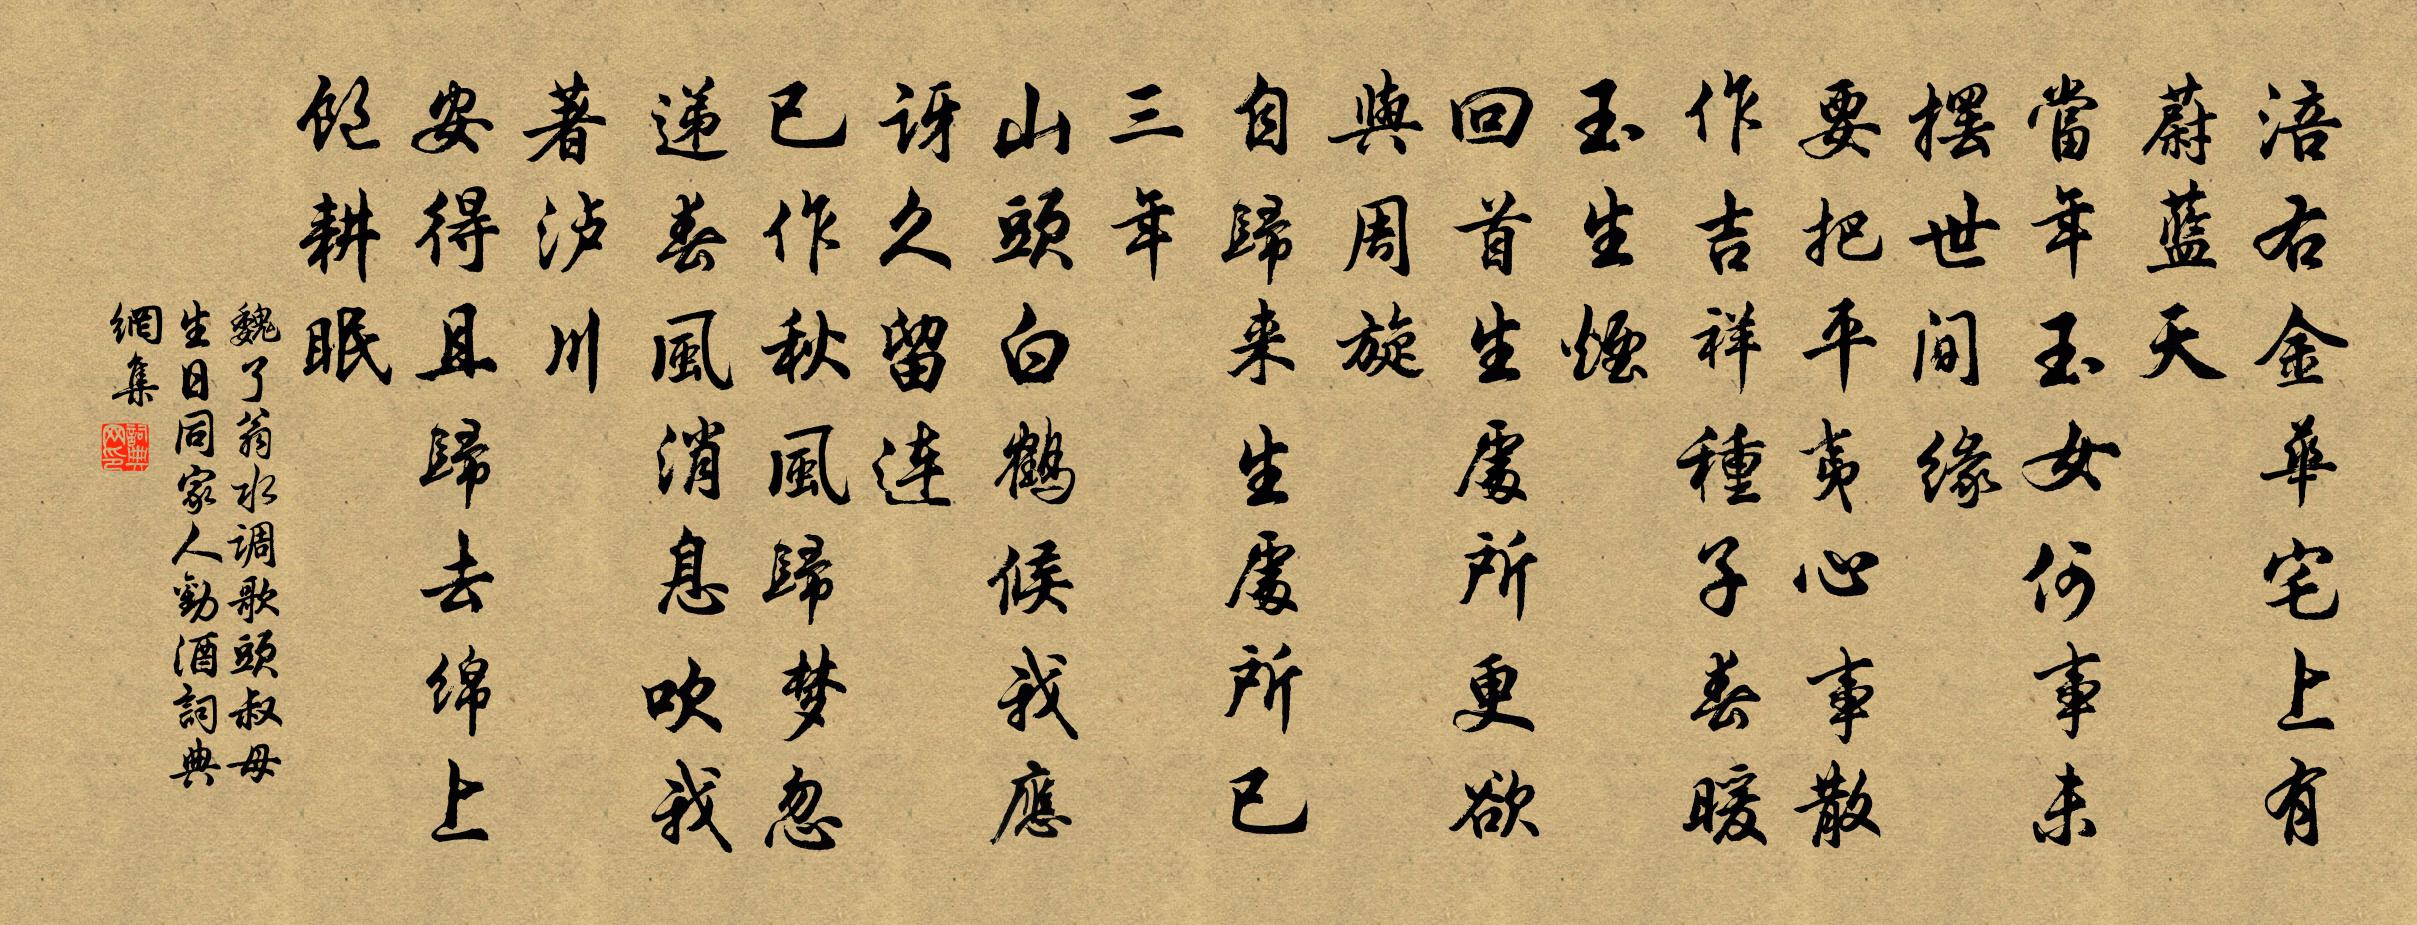 涪右金華宅上有
蔚藍天
當年玉女何事未
擺世间緣
要把平夷心事散
作吉祥種子春暖
玉生煙
回首生處所更欲
與周旋
自歸来生處所已
三年
山頭白鶴候我應
讶久留连
已作秋風歸梦忽
递春風消息吹我
著泸川
安得且歸去绵上
饱耕眠
魏了翁水调歌頭叔母
生日同家人勸酒詞典
網集
詞典网印